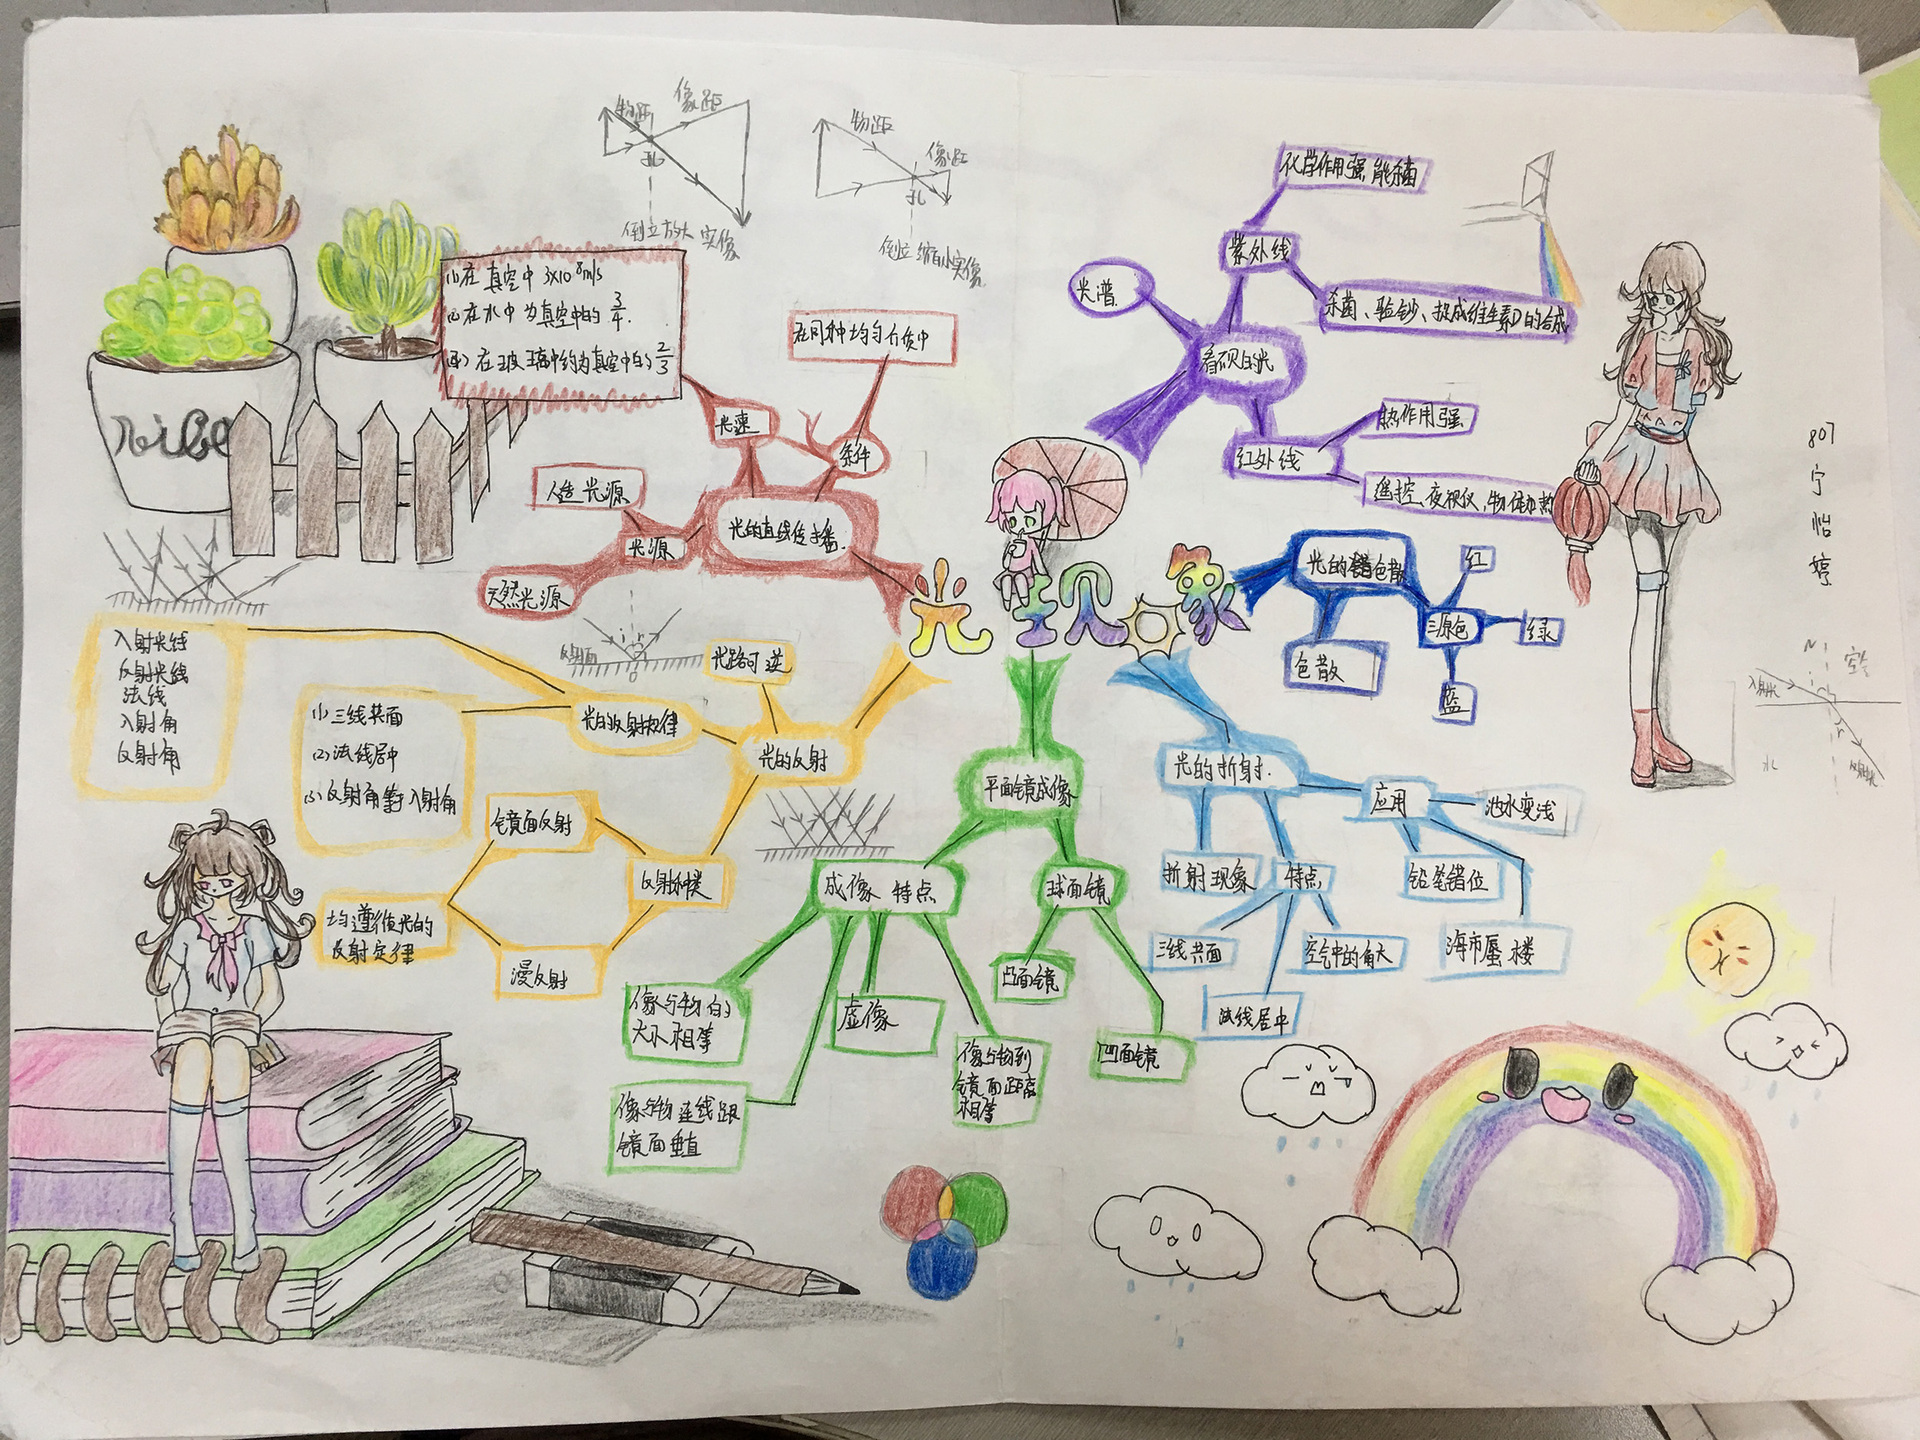 物距
像距
孔
倒立放大实像
物距
像距
孔
倒立缩小实像
(1)在真空中 3×10⁸m/s
(2)在水中为真空中的 3/4.
在玻璃中约为真空中的 2/3
光速
在同种均匀介质中
条件
人造光源
光源
天然光源
光的直线传播.
光现象
化学作用强,能杀菌
紫外线
光谱.
杀菌、验钞、促成维生素D的合成
看不见的光
热作用强
红外线
遥控、夜视仪,物体加热
光的色散
红
三原色
绿
蓝
色散
807
宁
怡
婷
入射光线
反射光线
法线
入射角
反射角
i r
反射面
O
光路可逆
光的反射规律
(1)三线共面
(2)法线居中
(3)反射角等于入射角
光的反射
镜面反射
反射种类
均遵循光的
反射定律
漫反射
平面镜成像
成像特点
球面镜
像与物的
大小相等
虚像
像与物到
镜面距离
相等
像与物连线跟
镜面垂直
凸面镜
凹面镜
光的折射.
应用
池水变浅
折射现象
特点
铅笔错位
三线共面
空气中的角大
海市蜃楼
法线居中
N
i
r
水